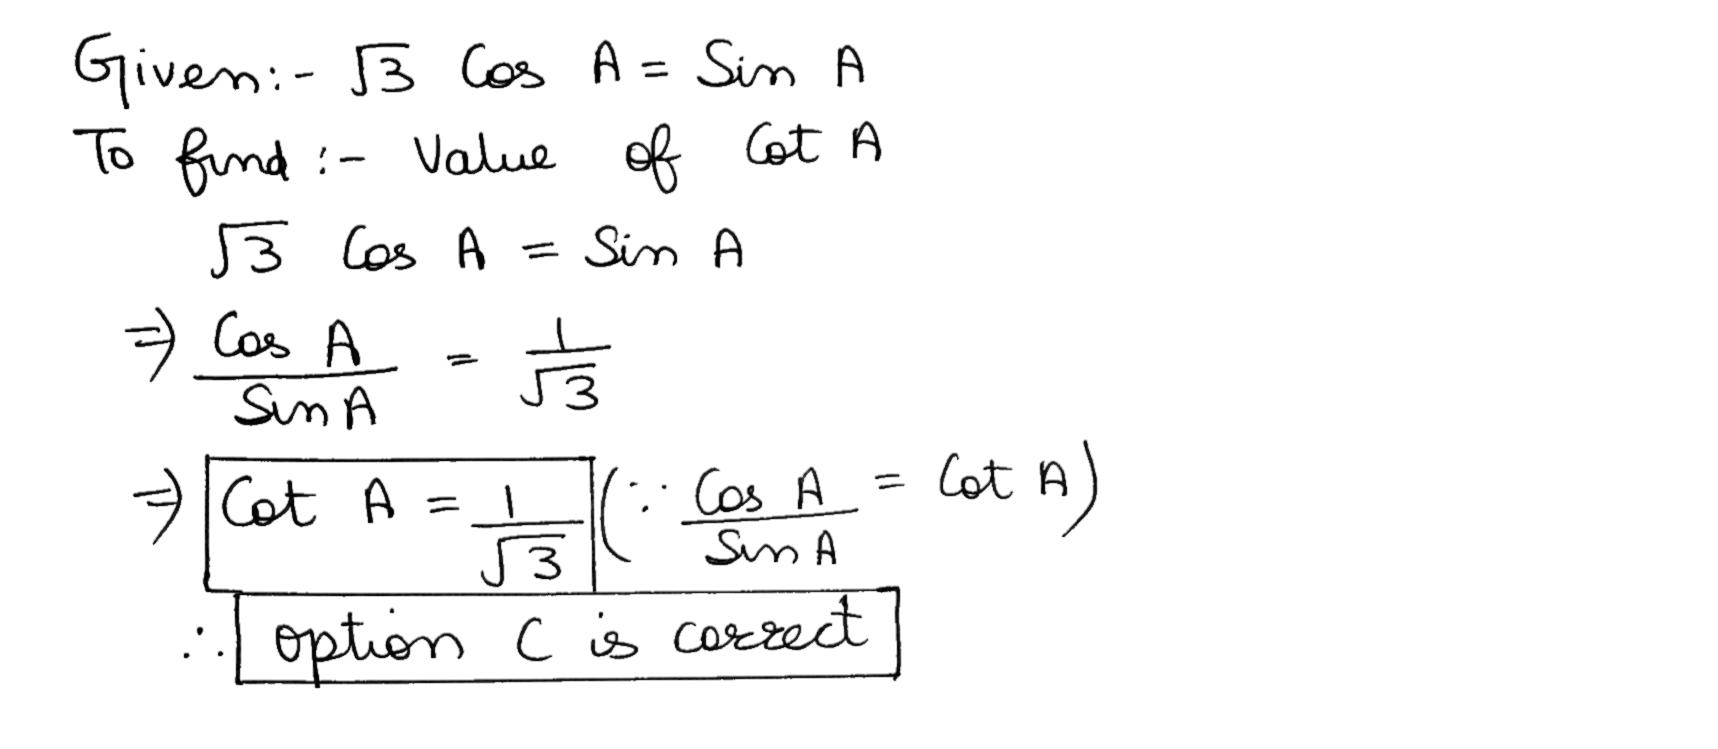 Given:- √3 Cos A = Sin A
To find :- Value of Cot A
√3 Cos A = Sin A
⇒ Cos A / Sin A = 1/√3
⇒ Cot A = 1/√3 (∵ Cos A / Sin A = Cot A)
∴ option C is correct